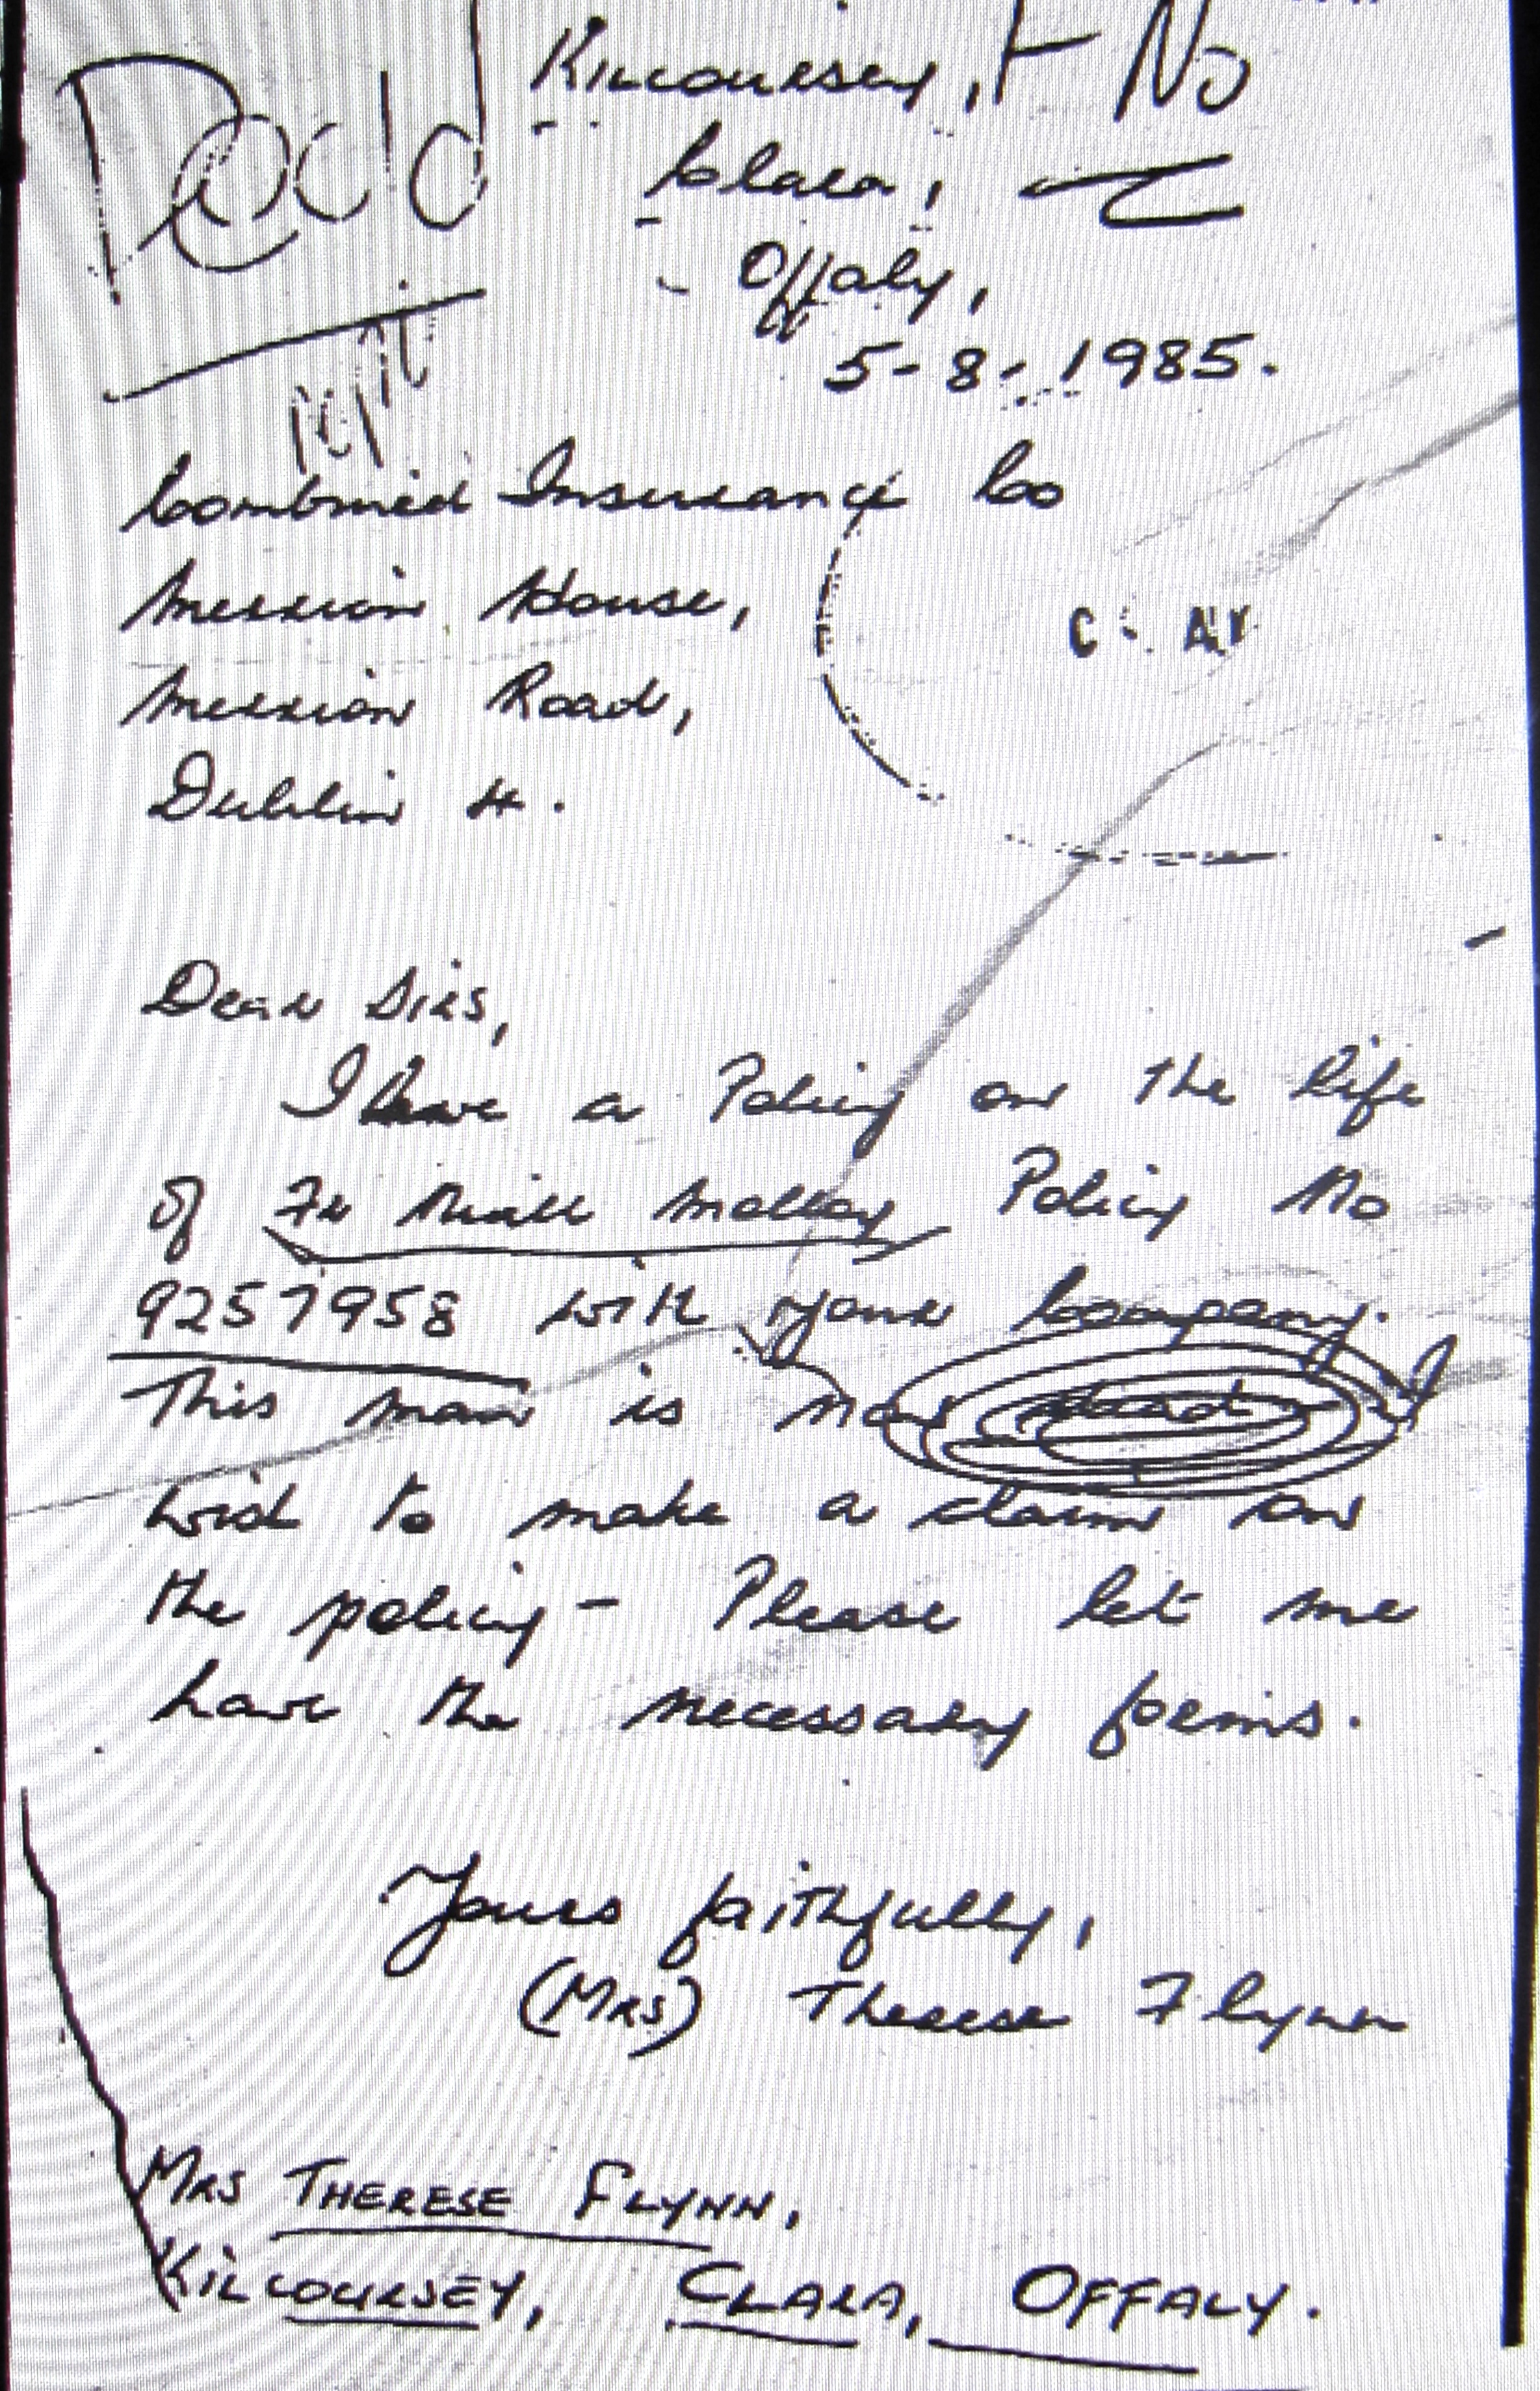 Recld
Kilcoursey, + No
Clara,
Offaly,
5-8-1985.
Combined Insurance Co
Merrion House,
Merrion Road,
Dublin 4.
Dear Sirs,
I have a Policy on the life
of Fr Niall Molloy Policy No
9257958 with your Company.
This man is now dead I
wish to make a claim on
the policy - Please let me
have the necessary forms.
Yours faithfully,
(Mrs) Therese Flynn
MRS THERESE FLYNN,
KILCOURSEY, CLARA, OFFALY.